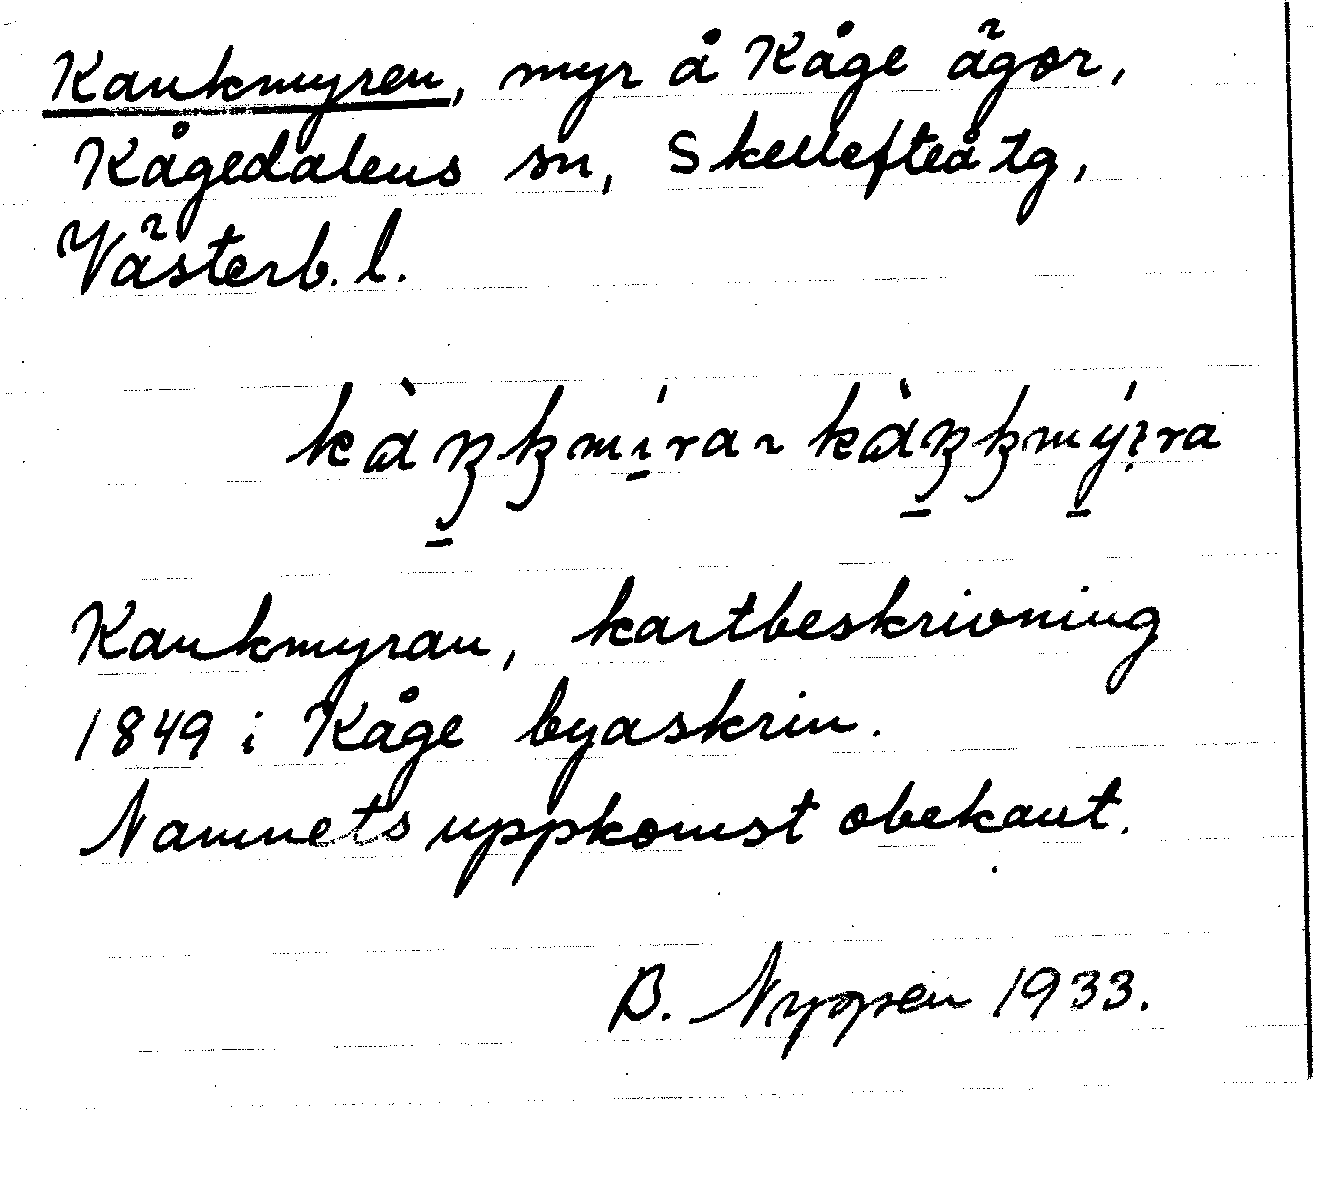 Kankmyren, myr å Kåge ägor,
Kågedalens sn, Skellefteå tg,
Västerb. l.
Kankmyran, kartbeskrivning
1849 i Kåge byaskrin.
Namnets uppkomst obekant.
B. Nyppen 1933.